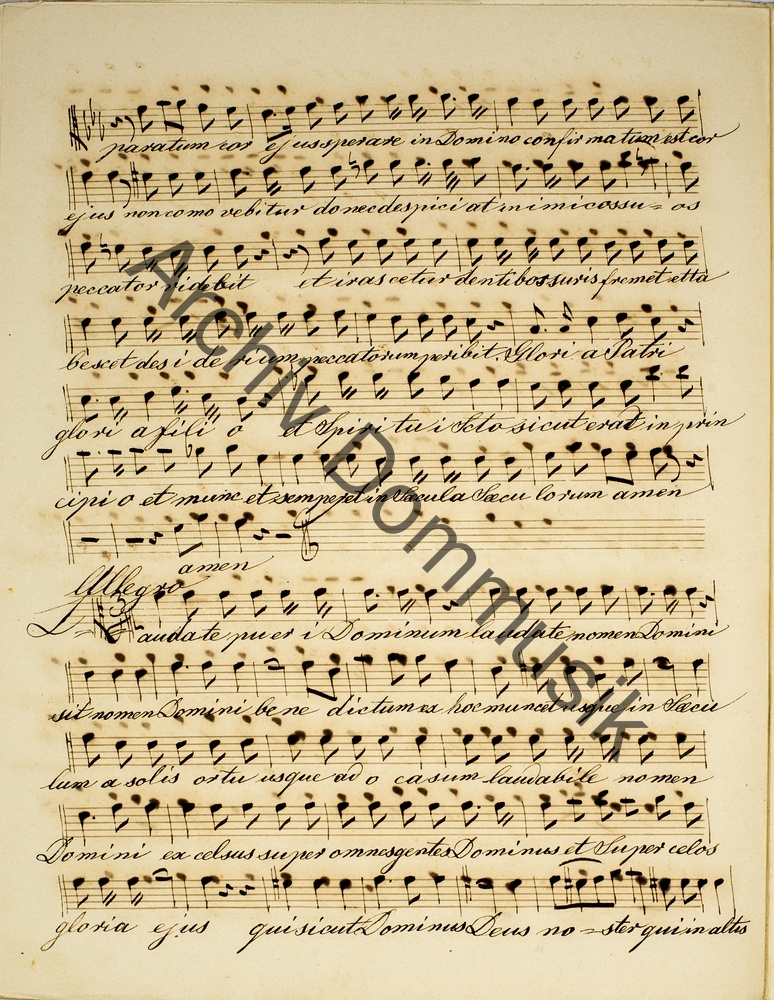 paratum cor ejus sperare in Domino confirmatum est cor
ejus non como vebitur donec despiciat inimicos su=os
peccator videbit et irascetur dentibos suris fremet et ta
bescet desiderium peccatorum peribit. Glori a Patri
glori a fili o et Spiritui Scto sicut erat in prin
cipi o et munc et semper et in Sæcula Sæcu lorum amen
amen
Allegro
Laudate pu er i Dominum laudate nomen Domini
sit nomen Domini be ne dictum ex hoc munc et usque in Sæcu
lum a solis ortu usque ad o casum laudabile nomen
Domini ex celsus super omnes gentes Dominus et Super celos
gloria ejus qui sicut Dominus Deus no=ster qui in altis
Archiv Dommusik